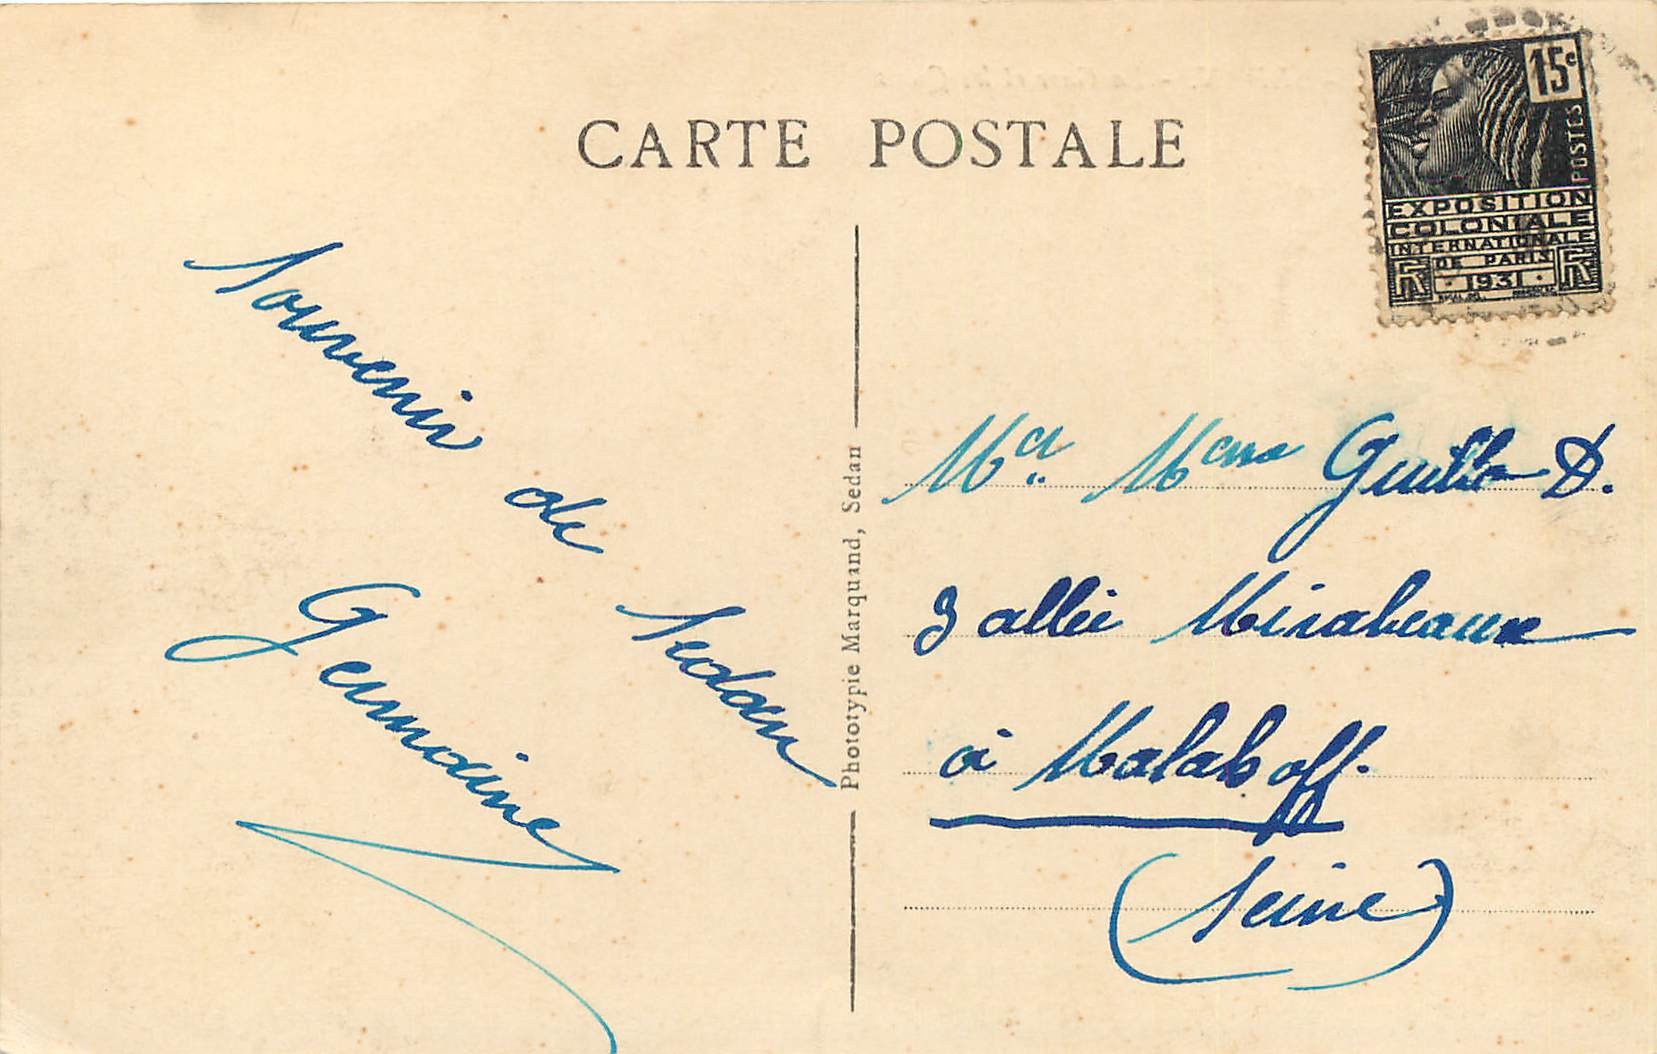 CARTE POSTALE
15c
POSTES
EXPOSITION
COLONIALE
INTERNATIONALE
DE PARIS
RF 1931 RF
Souvenir
de
Sedan
Germaine
Phototypie Marquand, Sedan
Mr Mme D.
3 allée Mirabeaux
à Malakoff.
(Seine)